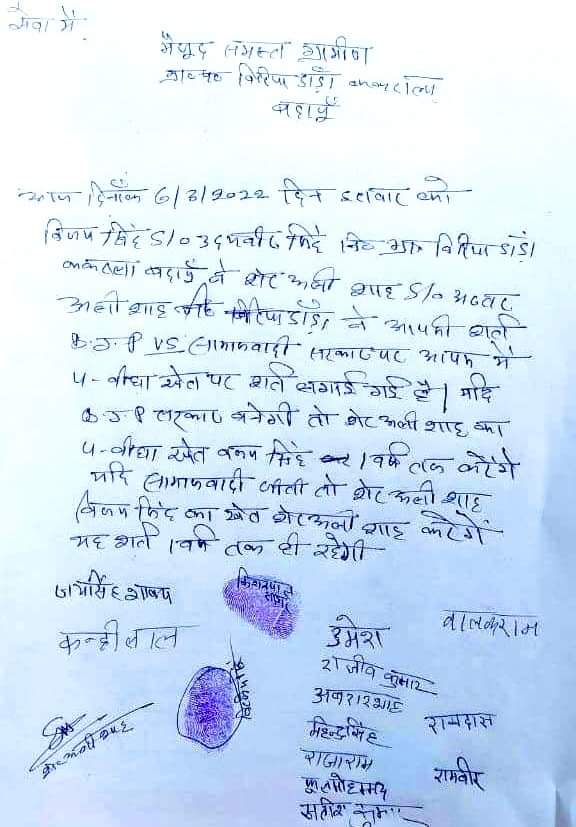 सेवा में
मौजूद समस्त ग्रामीण
ग्राम व पो० विरियाडांडी ककराला
बदायूँ
आज दिनाँक 6/3/2022 दिन इतवार को
विजय सिंह S/o उदयवीर सिंह नि० ग्राम विरियाडांडी
ककराला बदायूँ व शेर अली शाह S/o अख्तर
अली शाह विरियाडांडी ने आपकी शर्त
B.J.P VS समाजवादी सरकार पर आपस में
4-बीघा खेत पर शर्त लगाई गई है। यदि
B.J.P सरकार बनेगी तो शेर अली शाह का
4-बीघा खेत विजय सिंह 1 वर्ष तक करेंगे
यदि समाजवादी जीती तो शेर अली शाह
विजय सिंह का खेत शेर अली शाह करेंगे
यह शर्त 1 वर्ष तक ही रहेगी
जयसिंह शाक्य
किशनपाल
कन्हीलाल
उमेश
वालकराम
राजीव कुमार
अबरार शाह
महेन्द्रसिंह
रामदास
राजाराम
रामवीर
फुलमोहम्मद
सतीश कुमार
शेर अली शाह